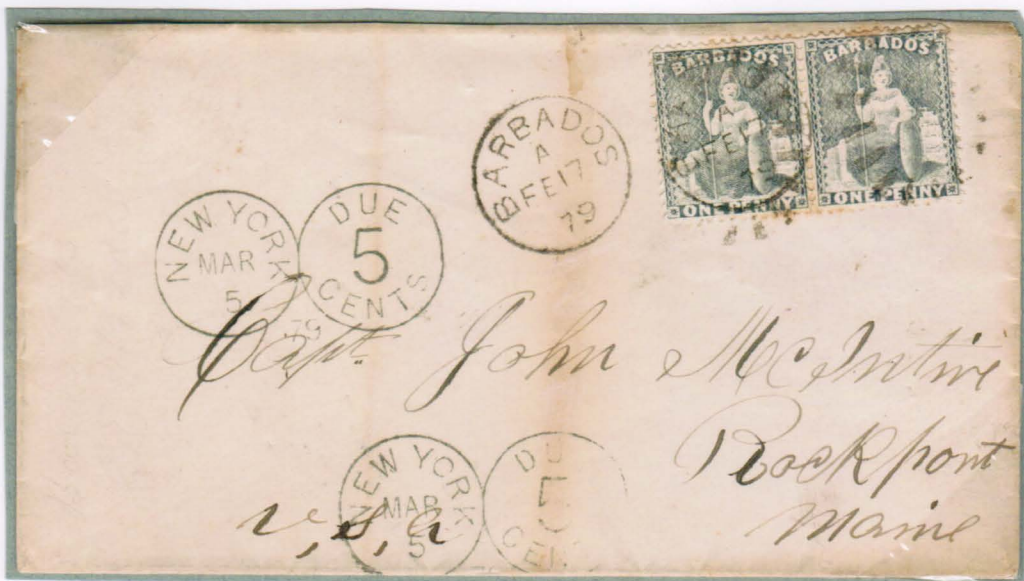 BARBADOS BARBADOS
ONE PENNY ONE PENNY
BARBADOS
A
FE 17
79
NEW YORK
MAR
5
79
DUE
5
CENTS
Capt. John McIntire
Rockport
Maine
U,S,A
NEW YORK
MAR
5
DU
5
CEN